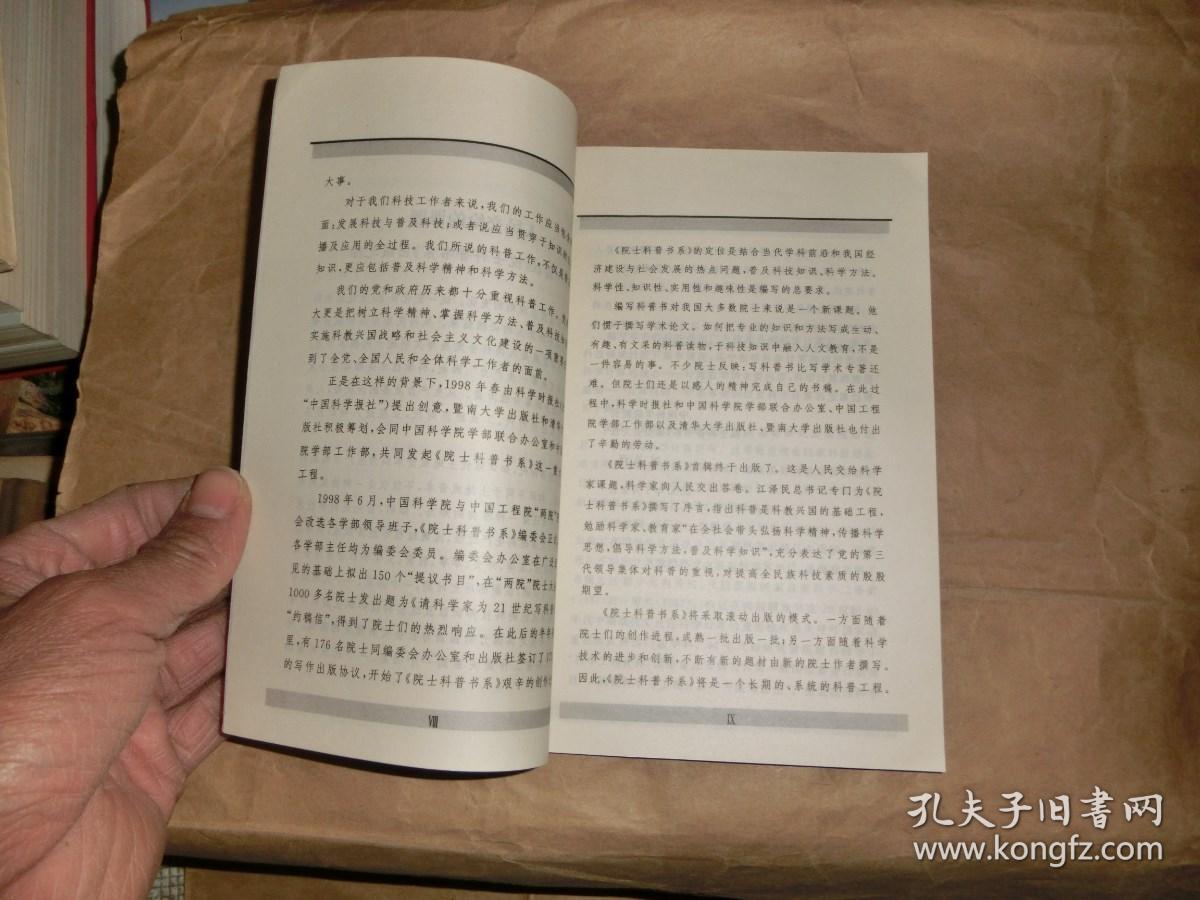 大事。
对于我们科技工作者来说，我们的工作应当
面：发展科技与普及科技；或者说应当贯穿于知识
播及应用的全过程。我们所说的科普工作，不仅
知识，更应包括普及科学精神和科学方法。
我们的党和政府历来都十分重视科普工作。
大更是把树立科学精神、掌握科学方法、普及科技
实施科教兴国战略和社会主义文化建设的一项重要
到了全党、全国人民和全体科学工作者的面前。
正是在这样的背景下，1998年春由科学时报社
“中国科学报社”）提出创意，暨南大学出版社和清华
版社积极筹划，会同中国科学院学部联合办公室和
院学部工作部，共同发起《院士科普书系》这一重
工程。
1998年6月，中国科学院与中国工程院“两院”
会改选各学部领导班子，《院士科普书系》编委会正
各学部主任均为编委会委员。编委会办公室在广
见的基础上拟出150个“提议书目”，在“两院”院士大
1000多名院士发出题为《请科学家为21世纪写科
“约稿信”，得到了院士们的热烈响应。在此后的半
里，有176名院士同编委会办公室和出版社签订了
的写作出版协议，开始了《院士科普书系》艰辛的创作
Ⅷ
《院士科普书系》的定位是结合当代学科前沿和我国经
济建设与社会发展的热点问题，普及科技知识、科学方法。
科学性、知识性、实用性和趣味性是编写的总要求。
编写科普书对我国大多数院士来说是一个新课题。他
们惯于撰写学术论文。如何把专业的知识和方法写成生动、
有趣、有文采的科普读物，于科技知识中融入人文教育，不是
一件容易的事。不少院士反映：写科普书比写学术专著还
难。但院士们还是以感人的精神完成自己的书稿。在此过
程中，科学时报社和中国科学院学部联合办公室、中国工程
院学部工作部以及清华大学出版社、暨南大学出版社也付出
了辛勤的劳动。
《院士科普书系》首辑终于出版了。这是人民交给科学
家课题，科学家向人民交出答卷。江泽民总书记专门为《院
士科普书系》撰写了序言，指出科普是科教兴国的基础工程，
勉励科学家、教育家“在全社会带头弘扬科学精神，传播科学
思想，倡导科学方法，普及科学知识”，充分表达了党的第三
代领导集体对科普的重视，对提高全民族科技素质的殷殷
期望。
《院士科普书系》将采取滚动出版的模式。一方面随着
院士们的创作进程，成熟一批出版一批；另一方面随着科学
技术的进步和创新，不断有新的题材由新的院士作者撰写。
因此，《院士科普书系》将是一个长期的、系统的科普工程。
Ⅸ
孔夫子旧书网
www.kongfz.com